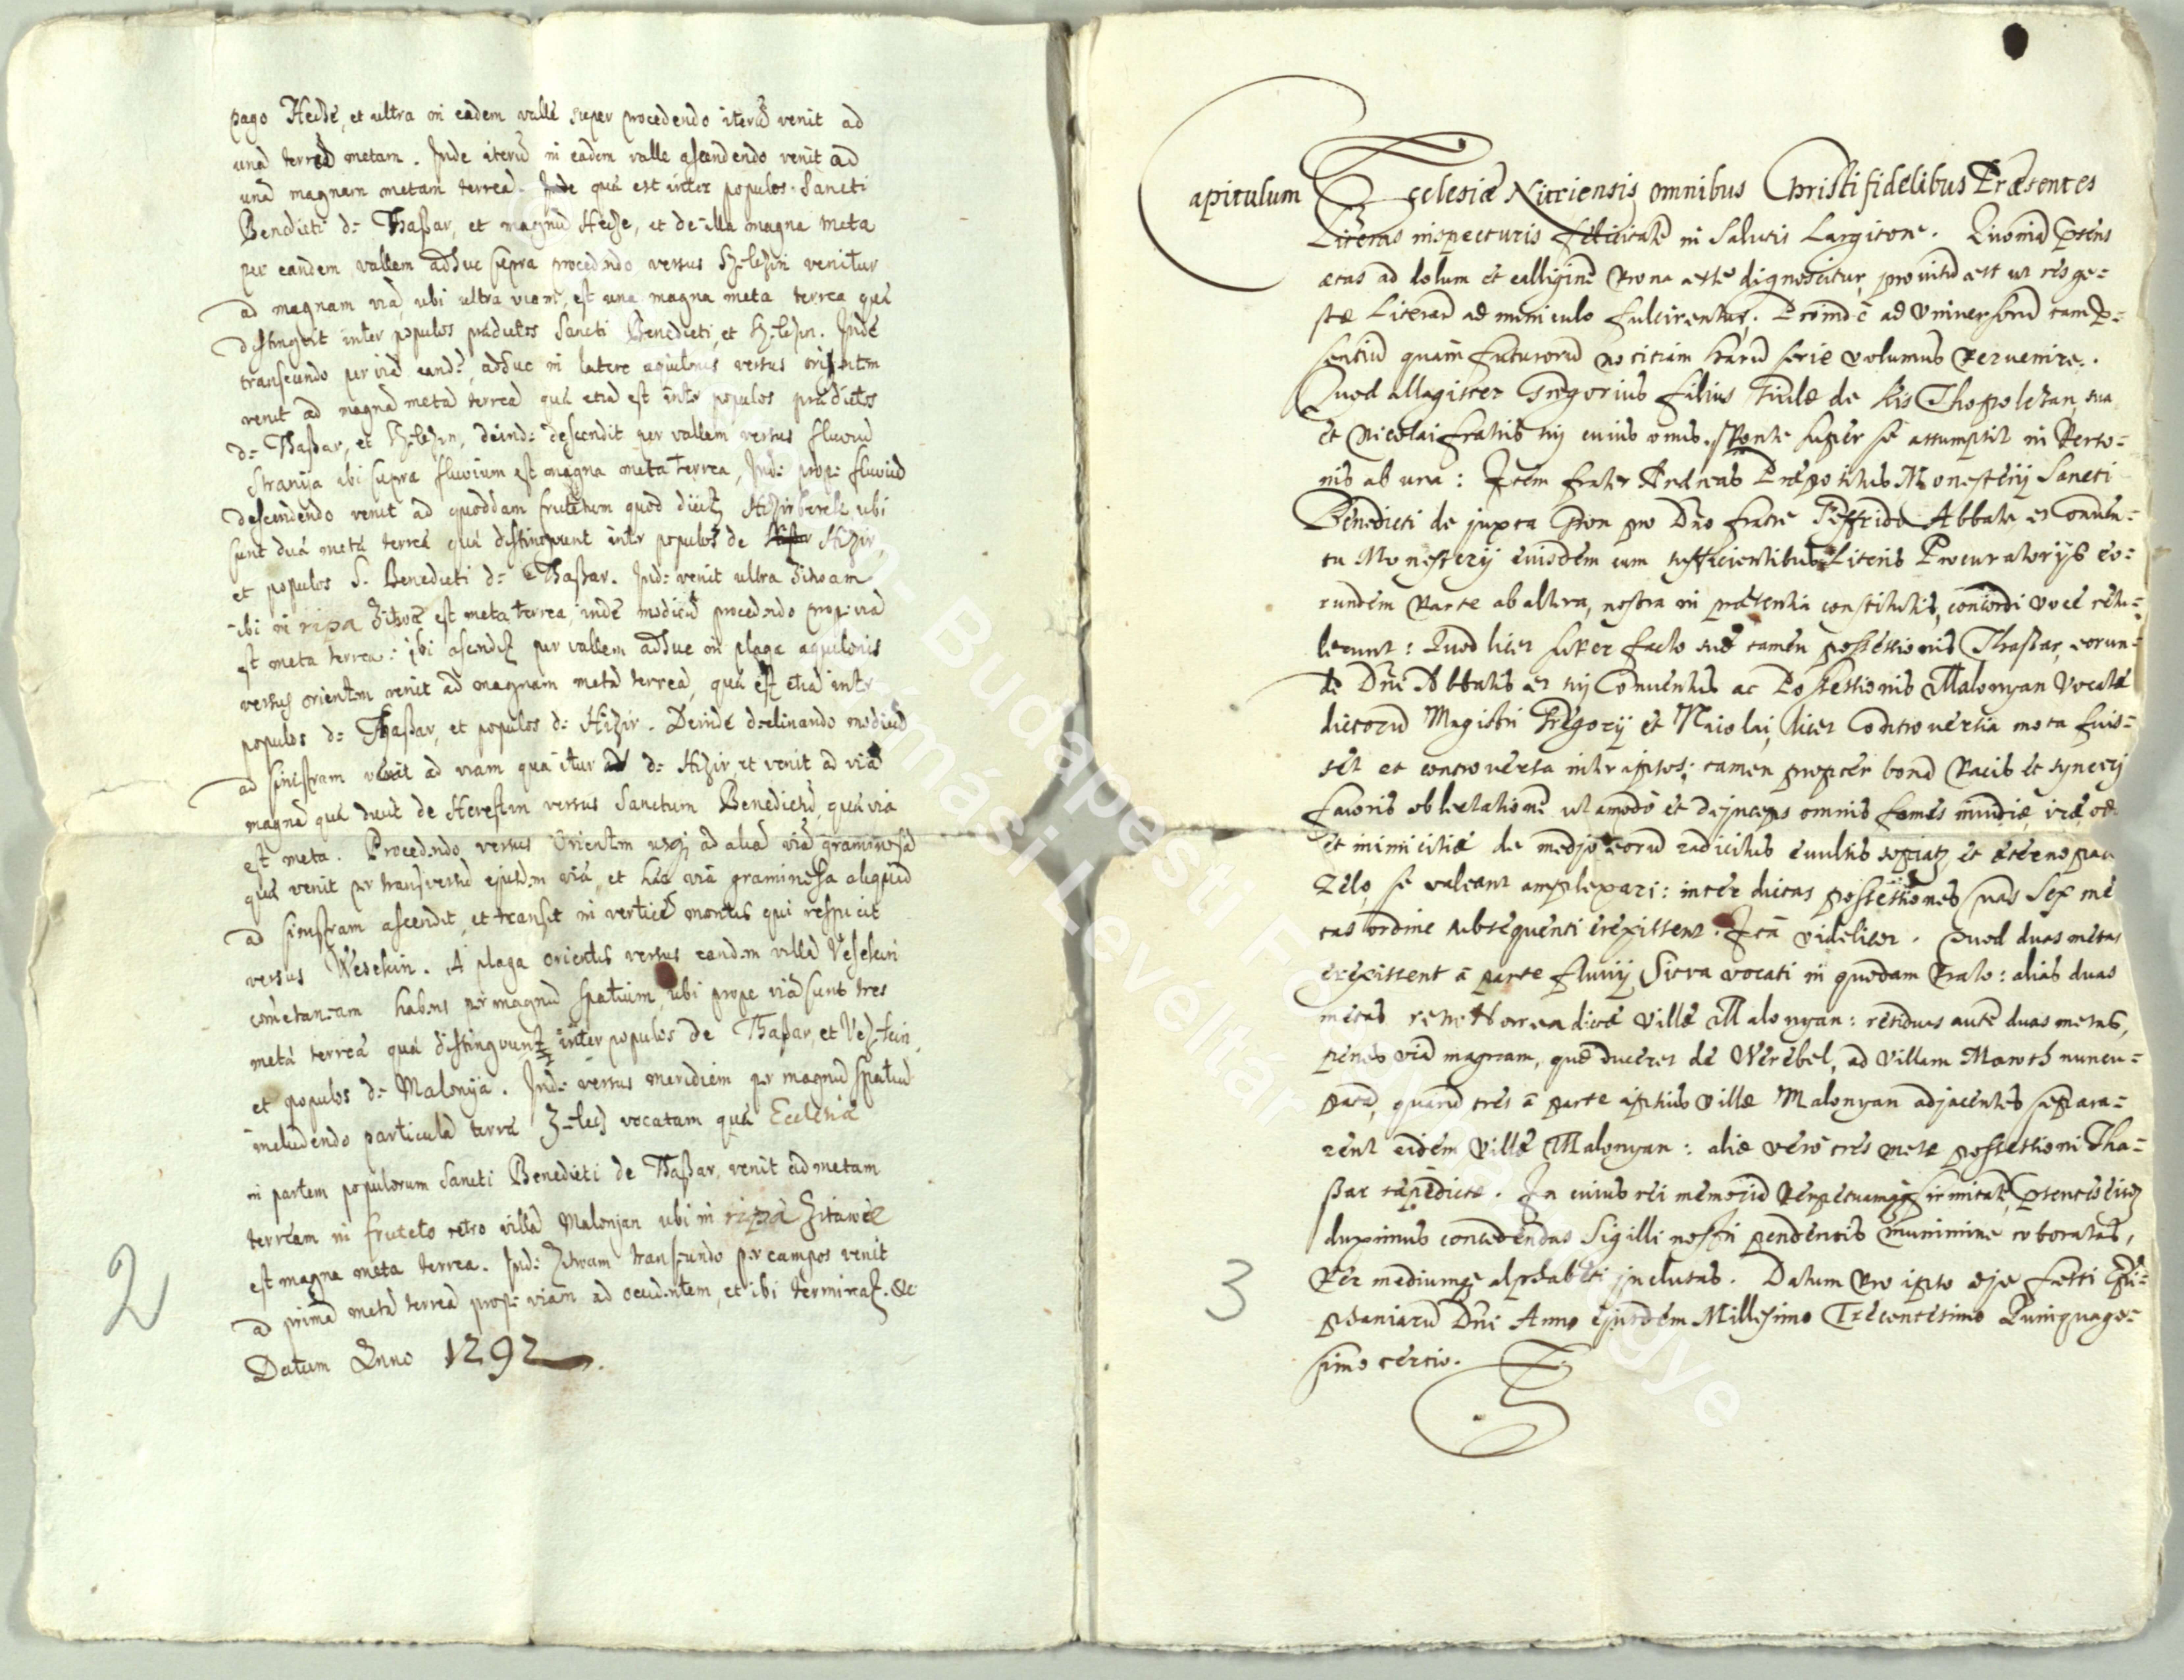 pago Hecze, et ultra in eadem valle super procedendo iterũ venit ad
unã terreã metam. Inde iterũ in eadem valle ascendendo venit ad
unã magnam metam terreã. quæ est inter populos Sancti
Benedicti de Thaßar, et magnũ Hecze, et de illa magna meta
per eandem vallem adhuc supra procedendo versus venitur
ad magnam viã, ubi ultra viam, est una magna meta terrea quæ
distingvit inter populos prædictos Sancti Benedicti, et Inde
transeundo per viã eandẽ, adhuc in latere aquilonis versus orientem
venit ad magnã metã terreã quæ etiã est inter populos prædictos
de Thaßar, et deinde descendit per vallem versus fluviũ
Stranija ibi supra fluvium est magna meta terrea, Inde prope fluviũ
descendendo venit ad quoddam frutetum quod dicitur ubi
sunt duæ metæ terreæ quæ distingvunt inter populos de Hizir,
et populos S. Benedicti de Thaßar. Inde venit ultra Zitvam
ibi in ripa Zitvæ est meta terrea, inde modicũ procedendo prope viã
est meta terrea: ibi ascendit per vallem adhuc in plaga aquilonis
versus orientem venit ad magnam metã terreã, quæ est etiã inter
populos de Thaßar, et populos de Hizir. Deinde declinando modicũ
ad sinistram venit ad viam qua itur de Hizir, et venit ad viã
magnã quæ ducit de Herestin versus Sanctum Benedictũ, quæ via
est meta. Procedendo versus Orientem usq3 ad aliã viã graminosã
quæ venit per transversũ ejusdem viæ, et hæc via graminosa aliquid
ad sinistram ascendit, et transit in verticẽ montis qui respicit
versus Wesekin. A plaga orientis versus eandem villã Vesekin
cometaneam habens per magnũ spatium, ubi prope viã sunt tres
metæ terreæ quæ distingvunt inter populos de Thaßar, et Vezekin,
et populos de Malonÿa. Inde versus meridiem per magnũ spatiũ
includendo particulã terræ vocatam quæ Ecclesiæ
in partem populorum Sancti Benedicti de Thaßar, venit ad metam
terream in fruteto retro villã Malonjan ubi in ripa Zitavæ
est magna meta terrea. Inde Zitvam transeundo per campos venit
ad primã metã terreã prope viam ad occidentem, et ibi terminat. &c
Datum Anno 1292.
2
Capitulum Ecclesiæ Nitriensis omnibus Christi fidelibus Præsentes
Literas inspecturis felicitatẽ in Salutis Largitore. Quoniã p̃sens
ætas ad dolum et calliginẽ prona esse dignoscitur, provisũ est ut res ge=
stæ Literarũ adminiculo fulcirentur. Proindẽ ad Universorũ tam p̃=
sentiũ quàm futurorũ nocitiam harũ serie volumus pervenire.
Quod Magister Gregorius filius Giule de Kis Thopolczan, sua
et Nicolai fratris sui cuius onus sponte super se assumpsit in perso=
nis ab una: Item frater Andreas Præpositus Monesterij Sancti
Benedicti de juxta Gron pro Dño fratre Abbate, et Conven=
tu Monesterij eiusdem cum sufficientibus Literis Procuratorijs eo=
rundem parte ab altera, nostra in præsentia constitutis, concordi voce retu=
lerunt: Quod licet super facto suæ tamen possessionis Thaßar, eorun=
dẽ Dñi Abbatis et sui Conventus ac Possessionis Malonyan vocatæ
dictorũ Magistri Gregorij et Nicolai, licet Controversia mota fuis=
set et controversa inter ipsos; tamen propter bonũ pacis et synceri
favoris oblectationẽ ut amodò et deinceps omnis fomes invidiæ, iræ,
et inimicitiæ de medio eorũ radicitus evulsus sopiatr et æterno pacis
zelo, se valeant amplexari: inter dictas possessiones suas sex me
tas ordine subsequenti erexissent. Itã videlicet. Quod duas metas
erexissent à parte fluvij Sitva vocati in quodam prato: alias duas
metas retro Horrea dictæ villæ Malonyan: residuas autẽ duas metas,
penes viã magnam, quæ duceret de Verebel, ad Villam Maroth nuncu=
patã, quarũ tres à parte ipsius villæ Malonyan adjacentes separa=
rent eidem villæ Malonyan: aliæ verò tres metæ possessioni Tha=
ßar sæpedictæ. In cuius rei memoriã perpetuamq3 firmitatẽ, p̃sentes eisdẽ
duximus concedendas Sigilli nostri pendentis munimine roboratas,
per mediumq3 alphabeti inclusas. Datum pro ipso die festi Epi=
phaniarũ Dñi Anno ejusdem Millesimo Trecentesimo Quinquage=
simo tertio.
3
Budapesti Levéltár